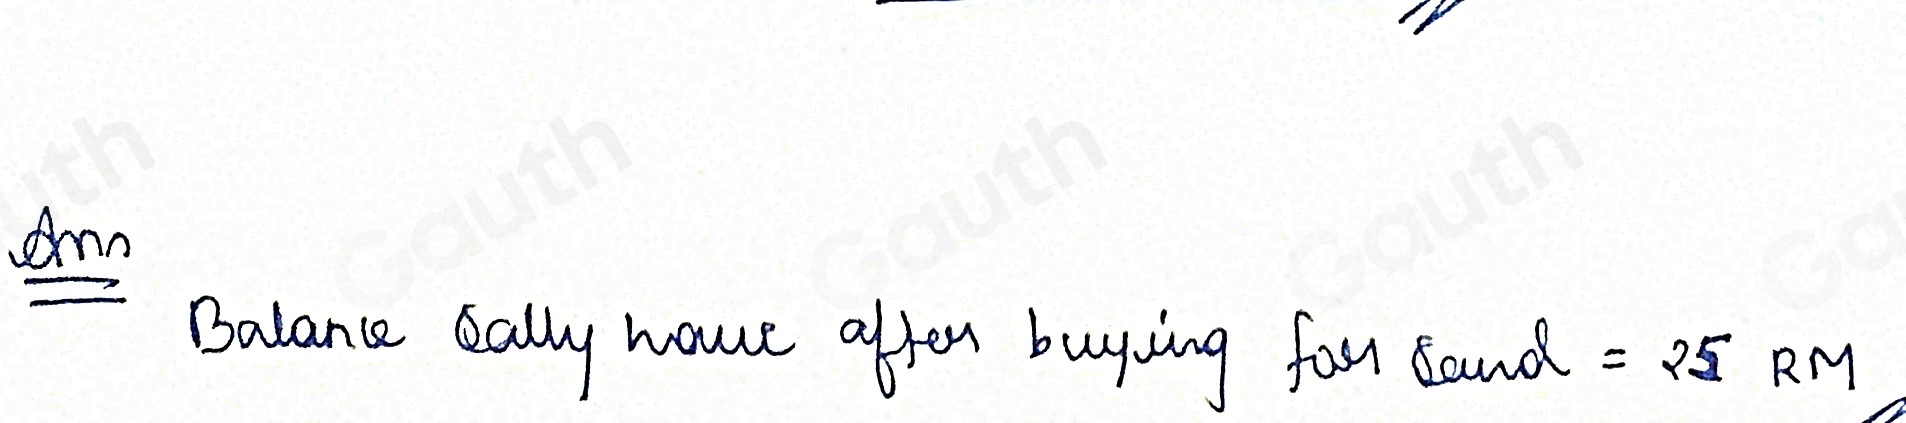 Ans
Balance Sally have after buying for Sand = 25 RM